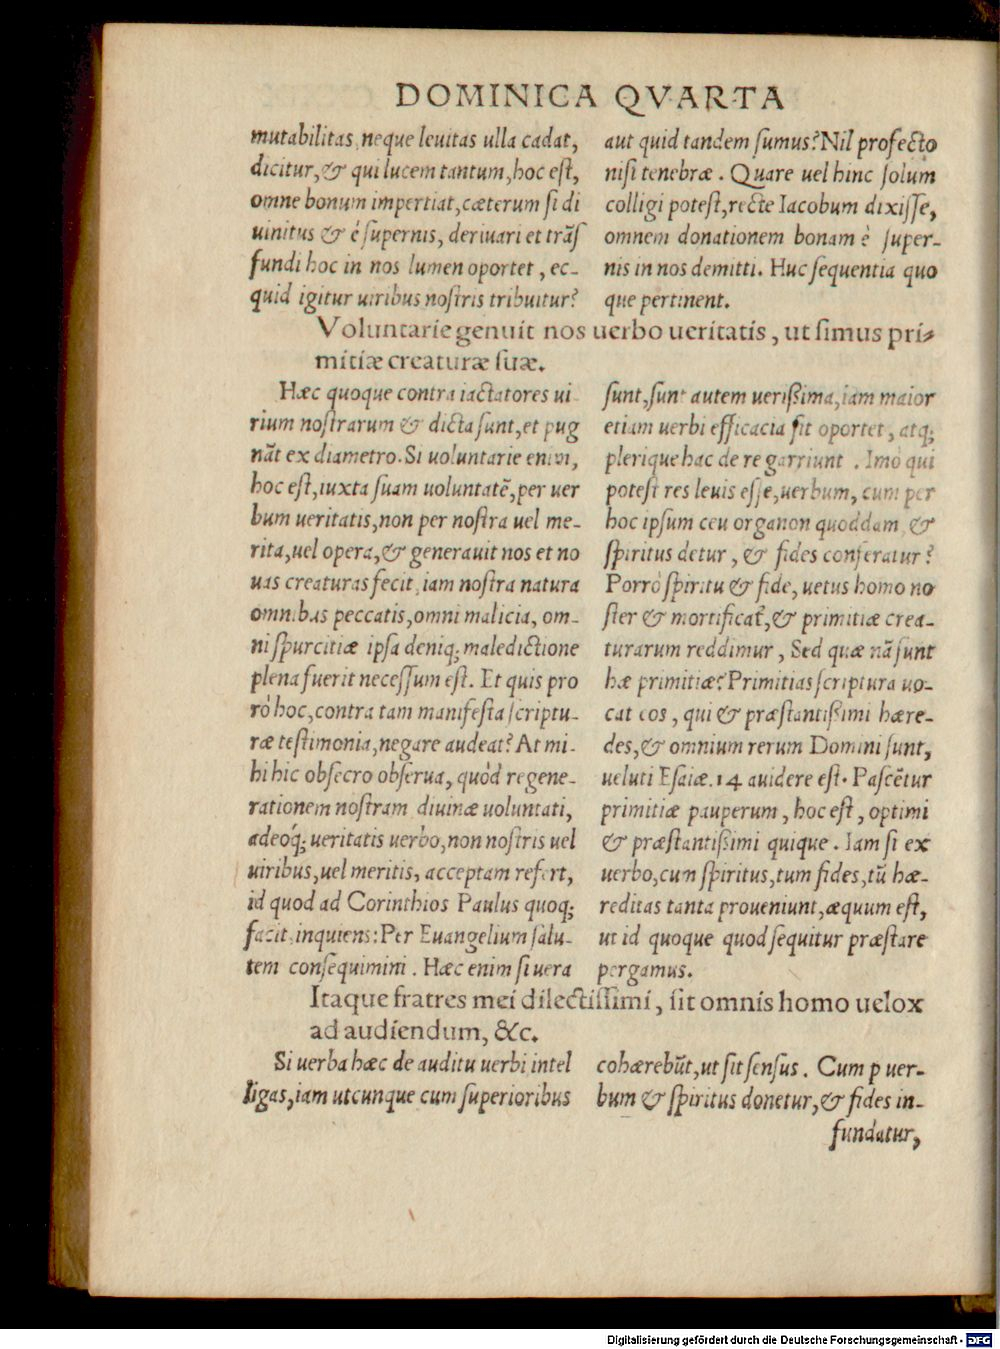 DOMINICA QVARTA
mutabilitas, neque leuitas ulla cadat,
dicitur, & qui lucem tantum, hoc est,
omne bonum impertiat, cæterum si di
uinitus & è supernis, deriuari et trãs
fundi hoc in nos lumen oportet, ec-
quid igitur uiribus nostris tribuitur?
aut quid tandem sumus? Nil profecto
nisi tenebræ. Quare uel hinc solum
colligi potest, recte Iacobum dixisse,
omnem donationem bonam è super-
nis in nos demitti. Huc sequentia quo
que pertinent.
Voluntarie genuit nos uerbo ueritatis, ut simus pri-
mitiæ creaturæ suæ.
Hæc quoque contra iactatores ui
rium nostrarum & dicta sunt, et pug
nãt ex diametro. Si uoluntarie enim,
hoc est, iuxta suam uoluntatẽ, per uer
bum ueritatis, non per nostra uel me-
rita, uel opera, & generauit nos et no
uas creaturas fecit, iam nostra natura
omnibus peccatis, omni malicia, om-
ni spurcitiæ ipsa deniq; maledictione
plena fuerit necessum est. Et quis pro
rò hoc, contra tam manifesta scriptu-
ræ testimonia, negare audeat? At mi-
hi hic obsecro obserua, quòd regene-
rationem nostram diuinæ uoluntati,
adeoq́; ueritatis uerbo, non nostris uel
uiribus, uel meritis, acceptam refert,
id quod ad Corinthios Paulus quoq;
facit, inquiens: Per Euangelium salu-
tem consequimini. Hæc enim si uera
sunt, sunt autem uerißima, iam maior
etiam uerbi efficacia sit oportet, atq;
plerique hac de re garriunt. Imò qui
potest res leuis esse, uerbum, cum per
hoc ipsum ceu organon quoddam &
spiritus detur, & fides conferatur?
Porrò spiritu & fide, uetus homo no
ster & mortificat᷑, & primitiæ crea-
turarum reddimur, Sed quæ nã sunt
hæ primitiæ? Primitias scriptura uo-
cat eos, qui & præstantißimi hære-
des, & omnium rerum Domini sunt,
ueluti Esaiæ. 14 a uidere est. Pascẽtur
primitiæ pauperum, hoc est, optimi
& præstantißimi quique. Iam si ex
uerbo, cun spiritus, tum fides, tũ hæ-
reditas tanta proueniunt, æquum est,
ut id quoque quod sequitur præstare
pergamus.
Itaque fratres mei dilectissimi, sit omnis homo uelox
ad audiendum, &c.
Si uerba hæc de auditu uerbi intel
ligas, iam utcunque cum superioribus
cohærebũt, ut sit sensus. Cum p uer-
bum & spiritus donetur, & fides in-
fundatur,
Digitalisierung gefördert durch die Deutsche Forschungsgemeinschaft - DFG